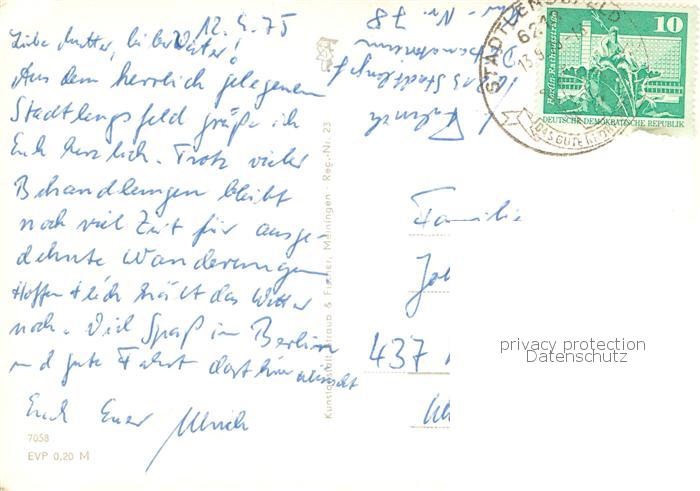 12.9.75
Liebe Mutter, lieber Vater!
Aus dem herrlich gelegenen
Stadtlengsfeld grüße ich
Euch herzlich. Trotz vieler
Behandlungen bleibt
noch viel Zeit für ausge-
dehnte Wanderungen
Hoffentlich hält das Wetter
noch. Viel Spaß in Berlin
und gute Fahrt dorthin wünscht
Euch Euer Ulrich
7058
EVP 0,20 M
Kunstanstalt Straub & Fischer, Meiningen · Reg.-Nr. 23
Nr. 78
Stadtlengsf
STADTLENGSFELD
621
13.9.75
DAS GUTE
10
Berlin-Rathausstraße
DEUTSCHE DEMOKRATISCHE REPUBLIK
Familie
Joh
437
privacy protection
Datenschutz